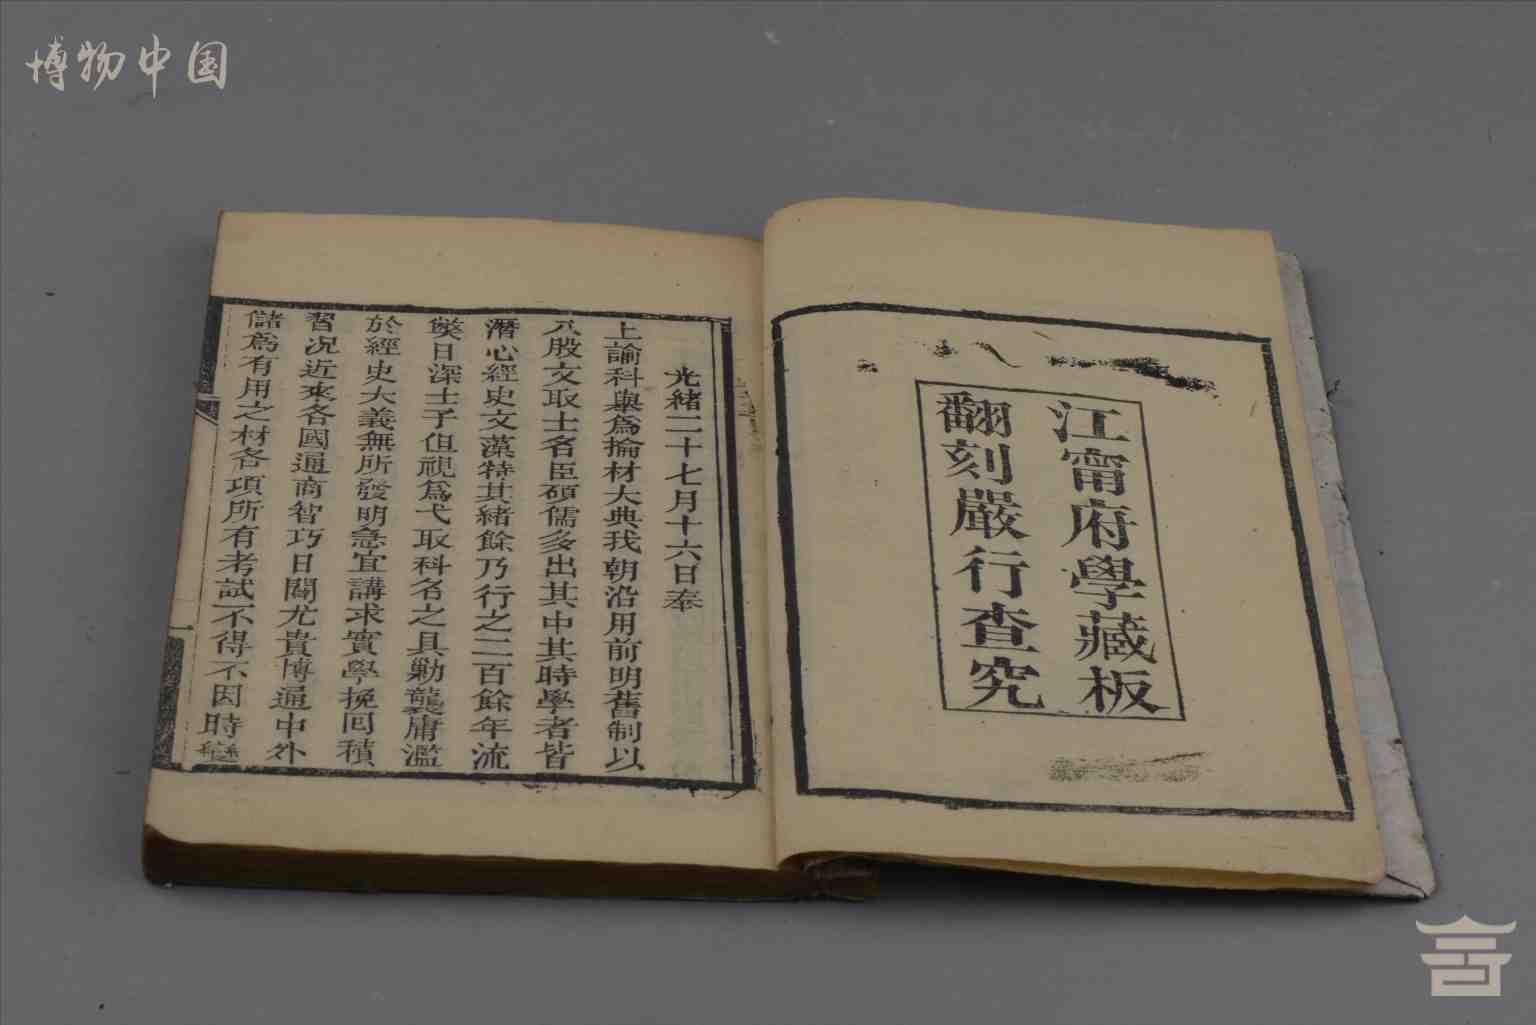 博物中国
江甯府學藏板
翻刻嚴行查究
光緒二十七月十六日奉
上諭科舉爲掄材大典我朝沿用前明舊制以
八股文取士名臣碩儒多出其中其時學者皆
潛心經史文藻特其緒餘乃行之二百餘年流
獘日深士子但視爲弋取科名之具勦襲庸濫
於經史大義無所發明急宜講求實學挽回積
習况近來各國通商智巧日闢尤貴博通中外
儲爲有用之材各項所有考試不得不因時變
一